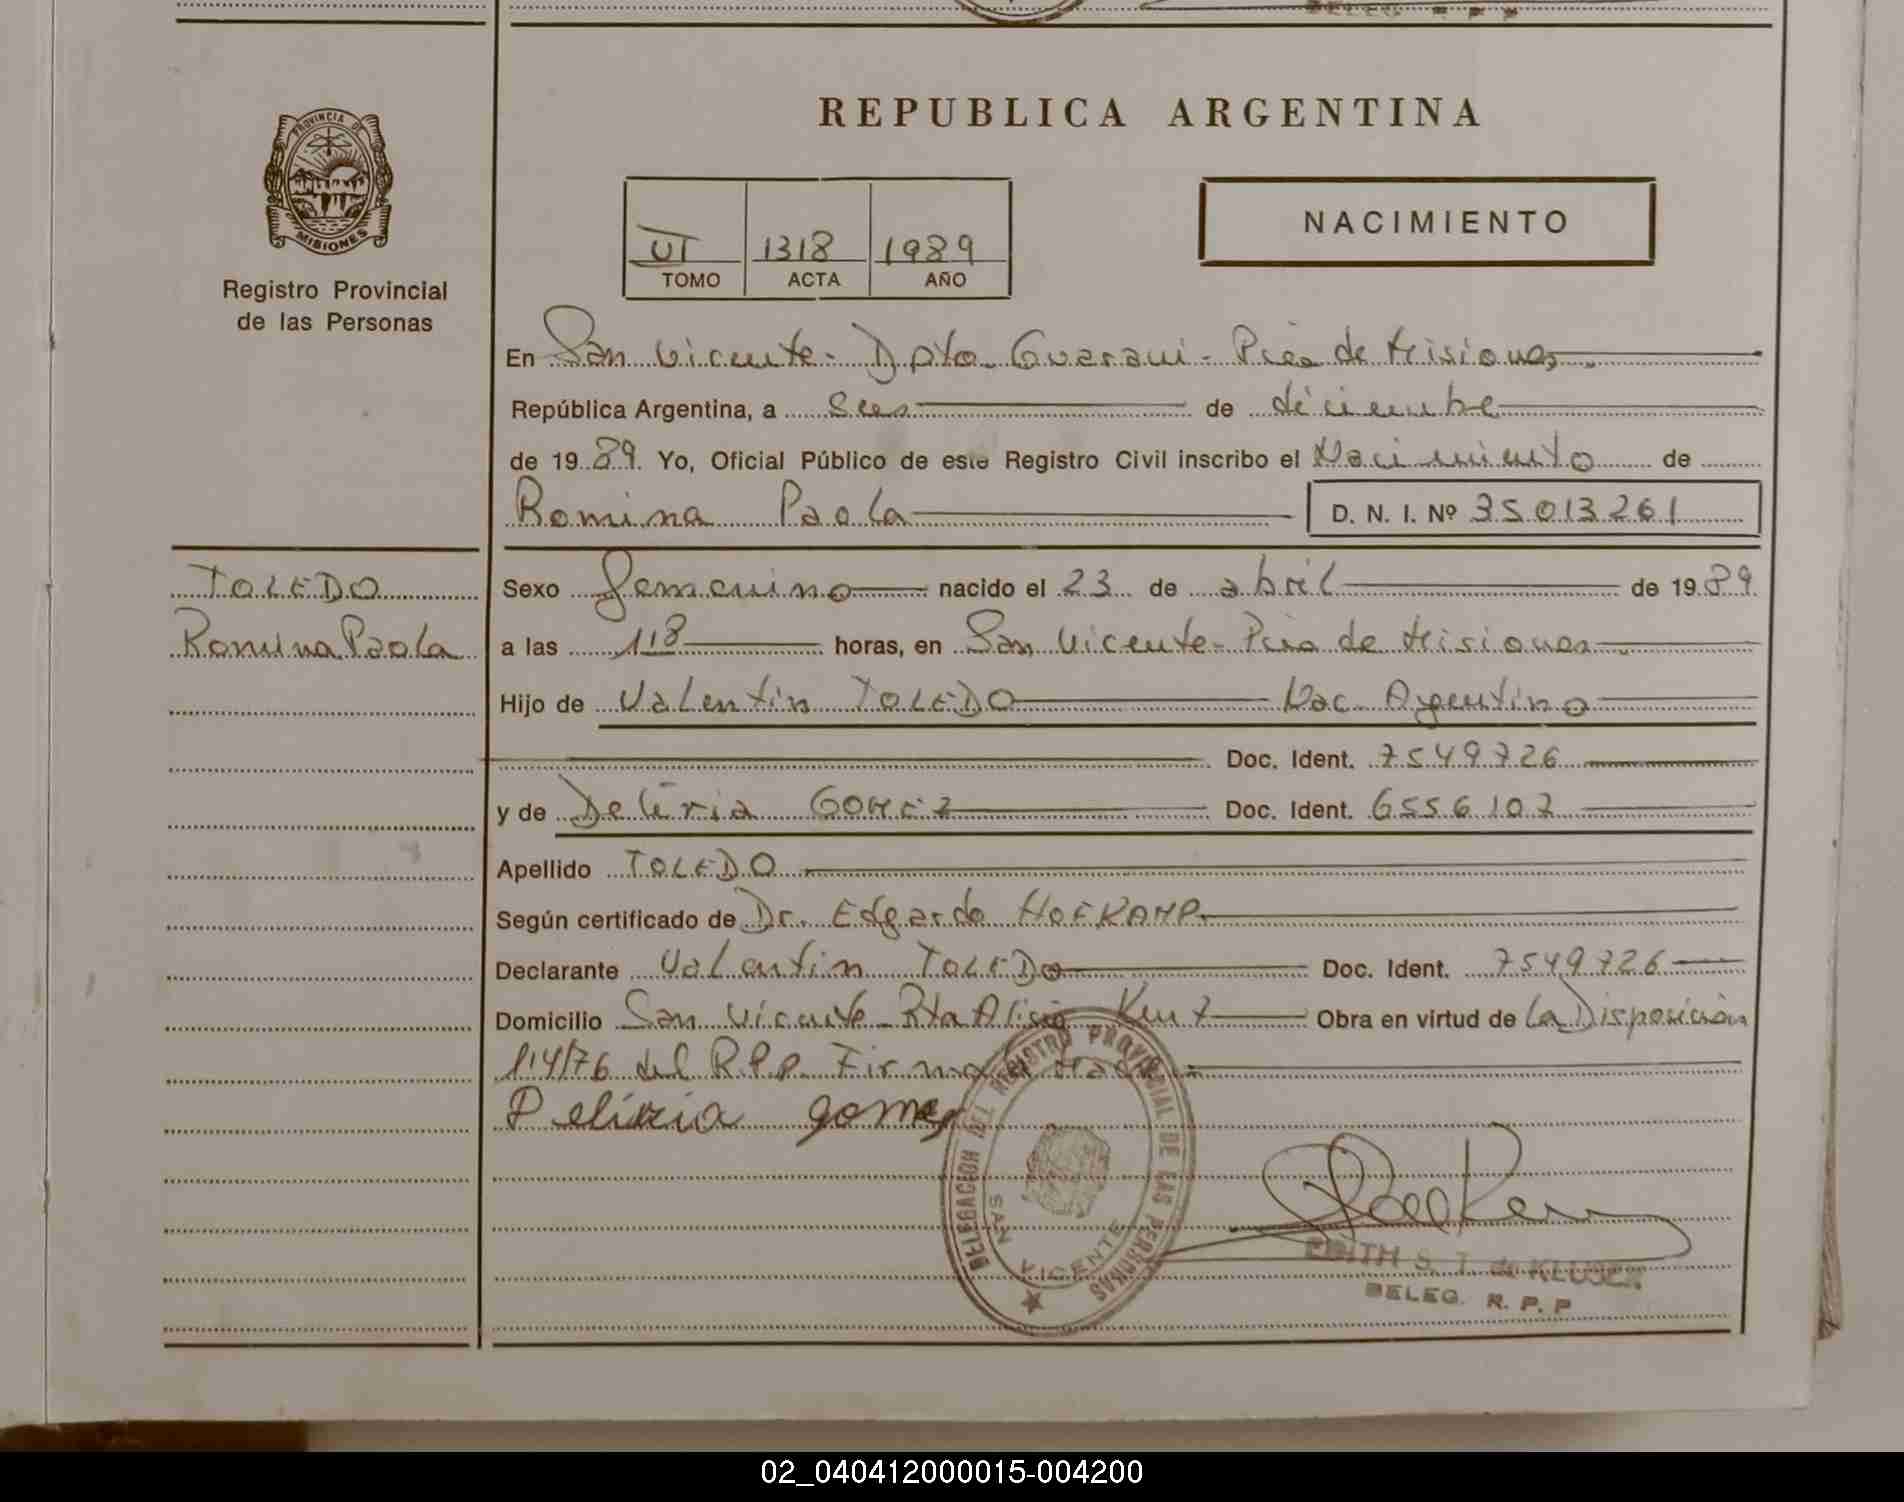 PROVINCIA DE
MISIONES
Registro Provincial
de las Personas
REPUBLICA ARGENTINA
UT 1318 1989
TOMO ACTA AÑO
NACIMIENTO
En San Vicente - Dpto. Guarani - Pcia de Misiones
República Argentina, a seis de diciembre
de 1989. Yo, Oficial Público de este Registro Civil inscribo el Nacimiento de
Romina Paola D. N. I. Nº 35013261
TOLEDO
Romina Paola
Sexo femenino nacido el 23 de abril de 1989
a las 18 horas, en San Vicente - Pcia de Misiones
Hijo de Valentin TOLEDO Nac. Argentino
Doc. Ident. 7549726
y de Deliria GOMEZ Doc. Ident. 6556107
Apellido TOLEDO
Según certificado de Dr. Edgardo HOFKAMP
Declarante Valentin TOLEDO Doc. Ident. 7549726
Domicilio San Vicente Rta Alicia Obra en virtud de La Disposición
114/76 del R.P.P. Firma
Deliria gomez
DELEGACION DEL REGISTRO PROVINCIAL DE LAS PERSONAS
SAN VICENTE
EDITH S. T. de KLUSER
DELEG. R. P. P
02_040412000015-004200